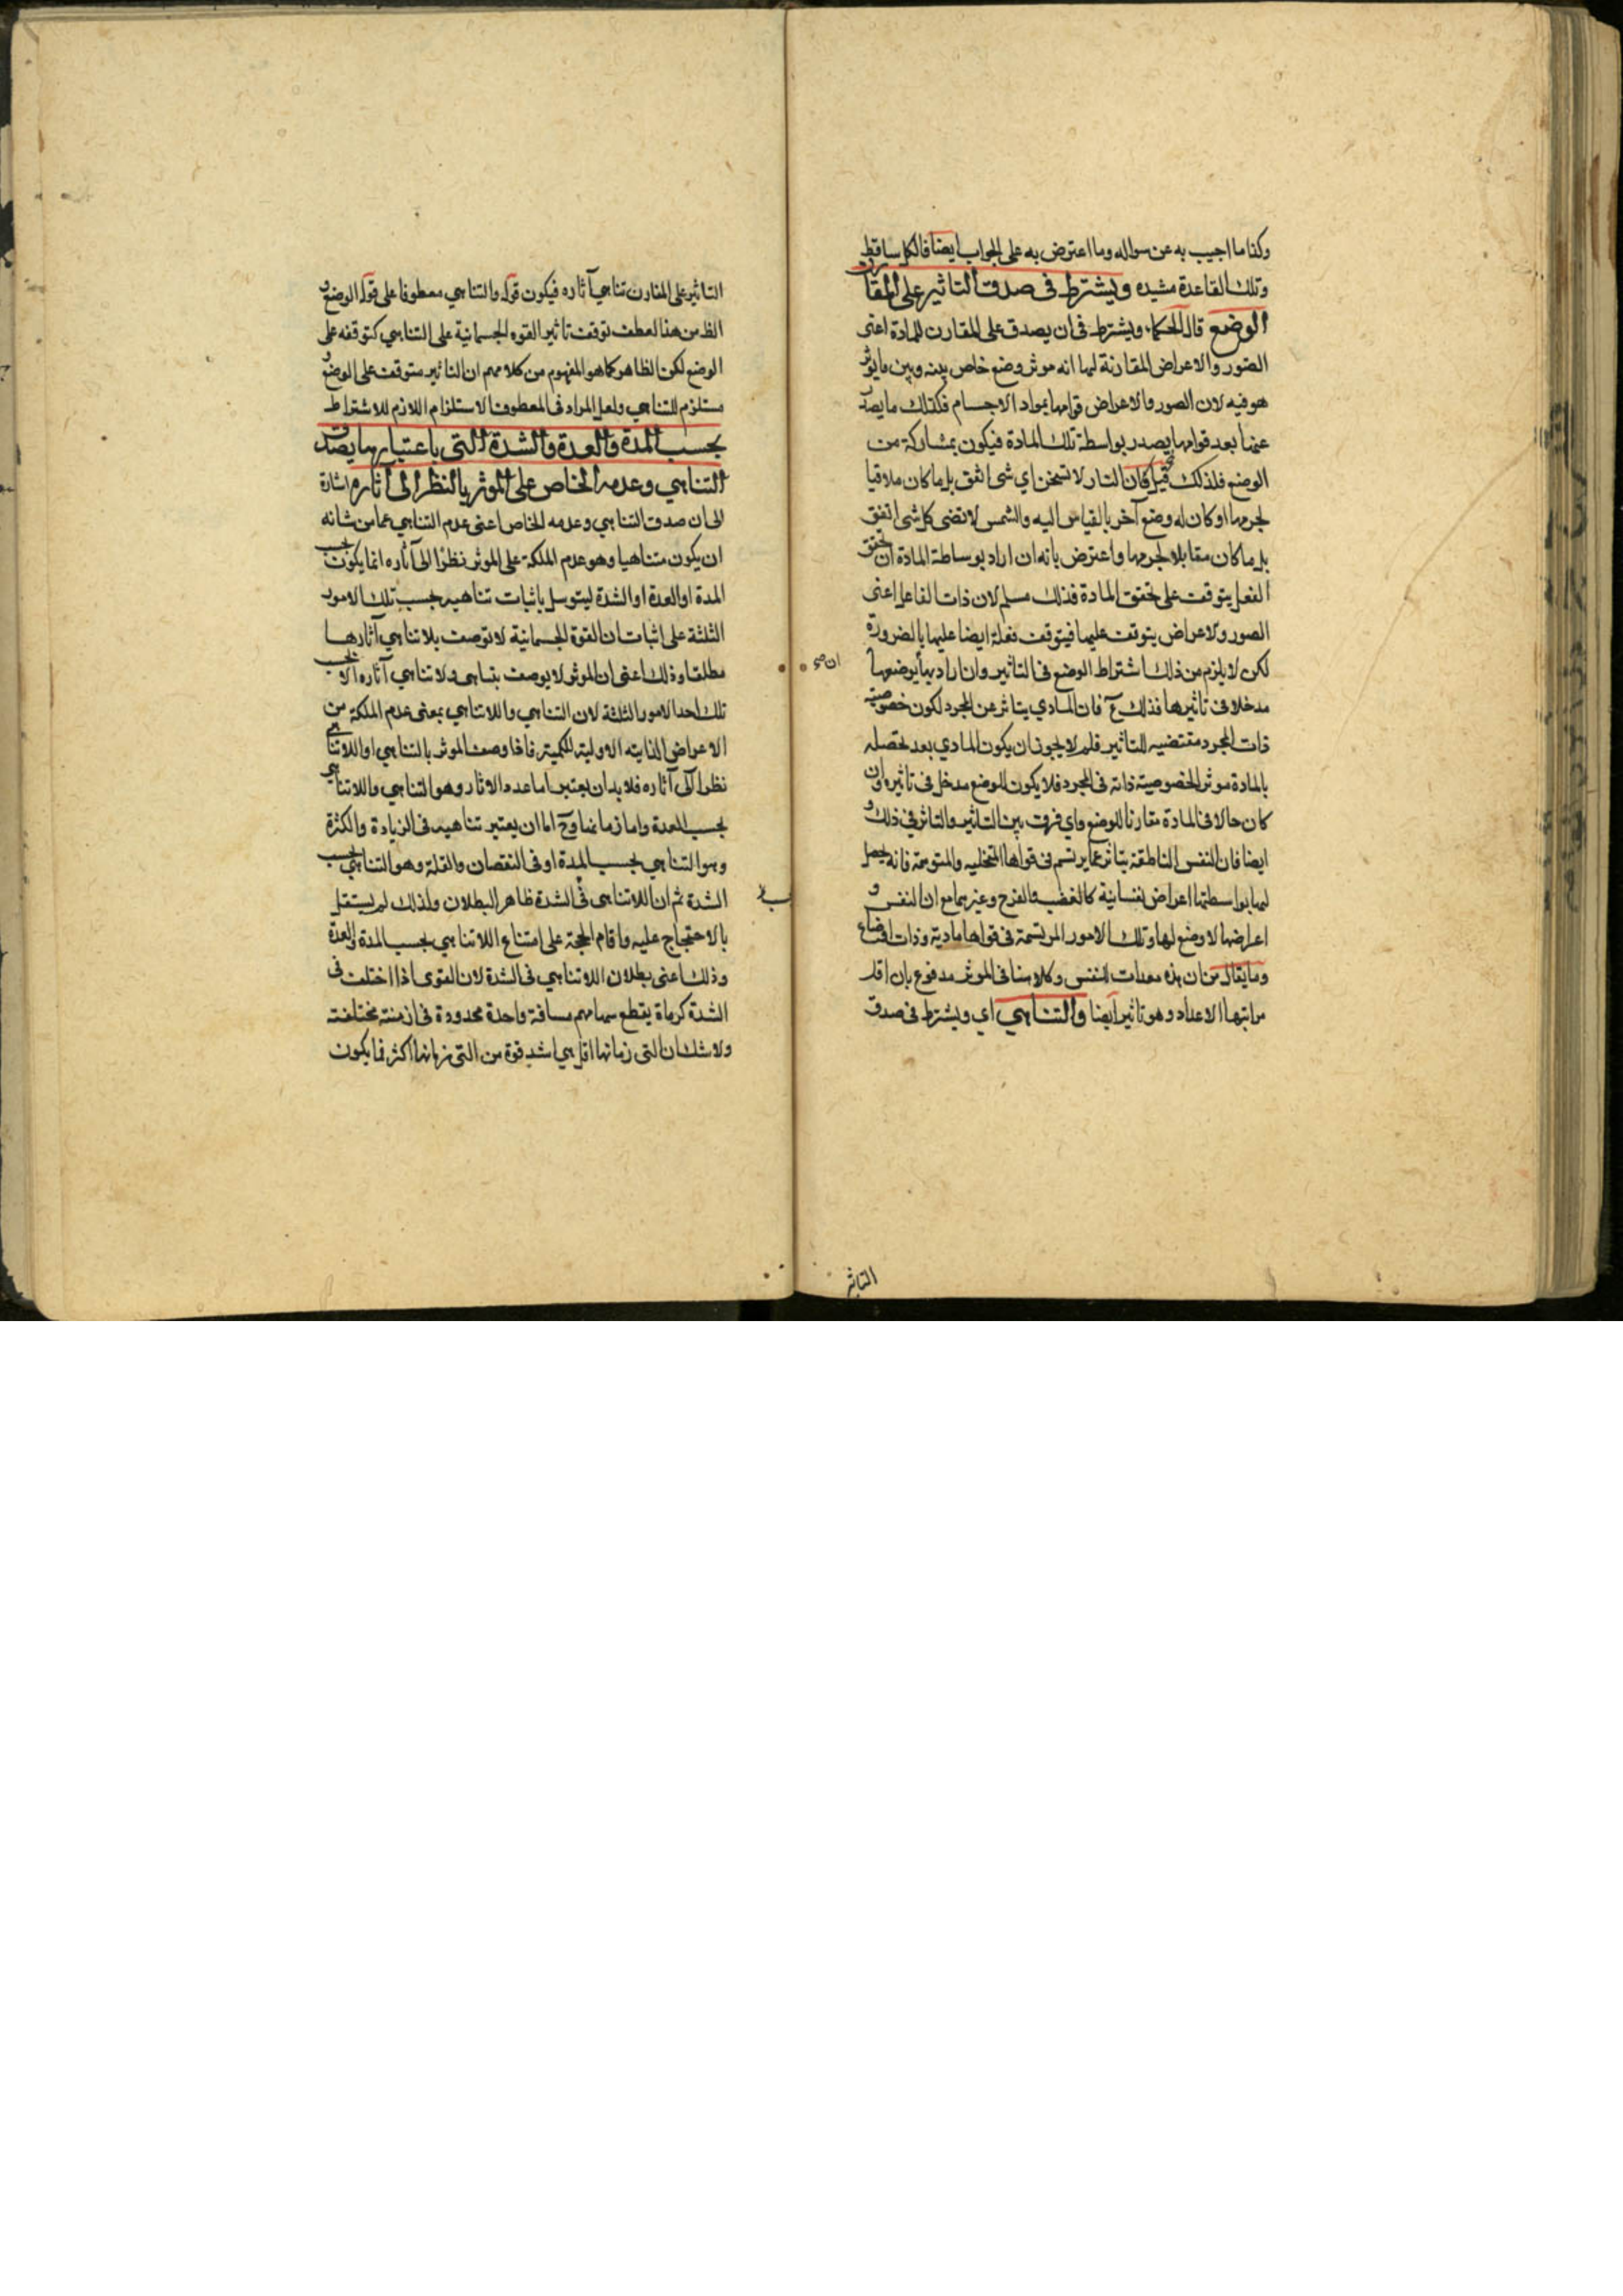 وكذا ما اجيب به عن سواله وما اعترض به على الجواب ايضا فالكل ساقط
وتلك القاعدة مشيده ويشترط فى صدق التاثير على المقارن
الوضع قال الحكماء ويشترط فى ان يصدق على المقارن للمادة اعنى
الصور والاعراض المقارنة لها انه موثر وضع خاص بينه وبين ما يوثر
هو فيه لان الصور والاعراض قوامها بمواد الاجسام فكذلك ما يصدر
عنها بعد قوامها يصدر بواسطة تلك المادة فيكون بمشاركة من
الوضع فلذلك قيل فان النار لا تسخن اي شى اتفق بل ما كان ملاقيا
لجرمها او كان له وضع آخر بالقياس اليه والشمس لا تضى كل شى اتفق
بل ما كان مقابلا لجرمها واعترض بانه ان اراد بوساطة المادة ان تحقق
الفعل يتوقف على تحقق المادة فذلك مسلم لان ذات الفاعل اعنى
الصور والاعراض يتوقف عليها فيتوقف فعله ايضا عليها بالضرورة
لكن لا يلزم من ذلك اشتراط الوضع فى التاثير وان اراد بها
مدخلا فى تاثيرها فذلك مم فان المادي يتاثر عن المجرد لكون خصوصية
ذات المجرد مقتضيه للتاثير فلم لا يجوز ان يكون المادي بعد تحصله
بالمادة موثرا لخصوصية ذاته فى المجرد فلا يكون للوضع مدخل فى تاثيره وان
كان حالا فى المادة مقارنا للوضع واي فرق بين التاثير والتاثر فى ذلك و
ايضا فان النفس الناطقة يتاثر عما يرتسم فى قواها المتخليه والمتوهمة فانه يحصل
لها بواسطتها اعراض نفسانية كالغضب والفرح وغيرهما مع ان النفس و
اعراضها لا وضع لها وتلك الامور المرتسمة فى قواها مادية وذات اوضاع
وما يقال من ان هذه معدات للنفس وكلامنا فى الموثر مدفوع بان اقل
مراتبها الاعداد وهو تاثير ايضا والتناهي اي ويشترط فى صدق
التاثير
التاثير على المقارن تناهي آثاره فيكون قوله والتناهي معطوفا على قوله الوضع و
الظ من هذا العطف توقف تاثير القوه الجسمانية على التناهي كتوقفه على
الوضع لكن الظاهر كما هو المفهوم من كلامهم ان التاثير متوقف على الوضع و
مستلزم للتناهي ولعل المراد فى المعطوف الاستلزام اللازم للاشتراط
بحسب المدة والعدة والشدة التي باعتبارها يصدق
التناهي وعدمه الخاص على الموثر بالنظر الى آثاره اشارة
الى ان صدق التناهي وعدمه الخاص اعنى عدم التناهي عما من شانه
ان يكون متناهيا وهو عدم الملكة على الموثر نظرا الى آثاره انما يكون بحسب
المدة او العدة او الشدة ليتوسل باثبات تناهيه بحسب تلك الامور
الثلثة على اثبات ان القوة الجسمانية لا توصف بلا تناهي آثارها
مطلقا وذلك اعنى ان الموثر لا يوصف بتناهى ولا تناهي آثاره الا بحسب
تلك احد الامور الثلثة لان التناهي واللاتناهي بمعنى عدم الملكة من
الاعراض الذاتيه الاولية للكمية فاذا وصف الموثر بالتناهي او اللاتناهي
نظرا الى آثاره فلا بد ان يعتبر اما عدد الاثار وهو التناهي واللاتناهي
بحسب العدة واما زمانها وح اما ان يعتبر تناهيه فى الزيادة والكثرة
وهو التناهي بحسب المدة او فى النقصان والقلة وهو التناهي بحسب
الشدة ثم ان اللاتناهى فى الشدة ظاهر البطلان ولذلك لم يستقل
بالاحتجاج عليه واقام الحجة على امتناع اللاتناهي بحسب المدة والعدة
وذلك اعنى بطلان اللاتناهي فى الشدة لان القوى اذا اختلفت فى
الشدة كرماة يقطع سهامهم مسافة واحدة محدودة فى ازمنة مختلفة
ولا شك ان التى زمانها اقل هي اشد قوة من التى زمانها اكثر فما يكون